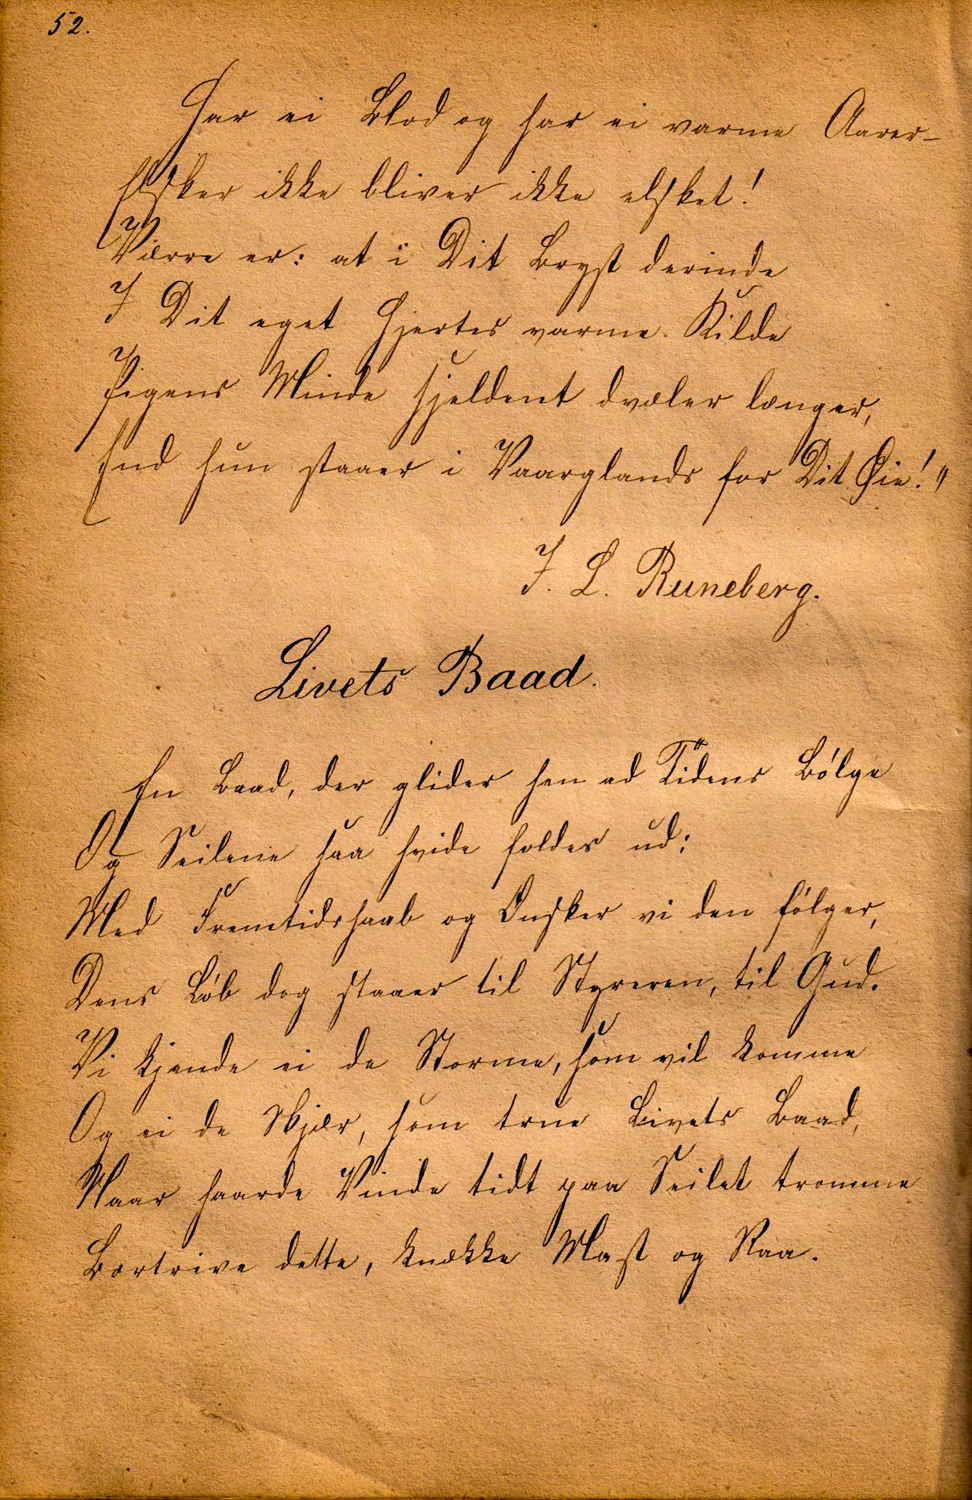 52.
Har ei Blod og har ei varme Aarer–
Elsker ikke bliver ikke elsket!
Værre er: at i Dit Bryst derinde
I Dit eget Hjertes varme Kilde
Pigens Minde sjeldent dvæler længer,
End hun staaer i Vaarglands for Dit Øie!"
J. L. Runeberg.
Livets Baad.
En Baad, der glider hen ad Tidens Bölge
Og Seilene saa hvide foldes ud;
Med Fremtidshaab og Ønsker vi den fölger,
Dens Löb dog staaer til Styreren, til Gud.
Vi kjende ei de Storme, som vil komme
Og ei de Skjær, som true Livets Baad,
Naar haarde Vinde tidt paa Seilet tromme
Bortrive dette, knække Mast og Raa.